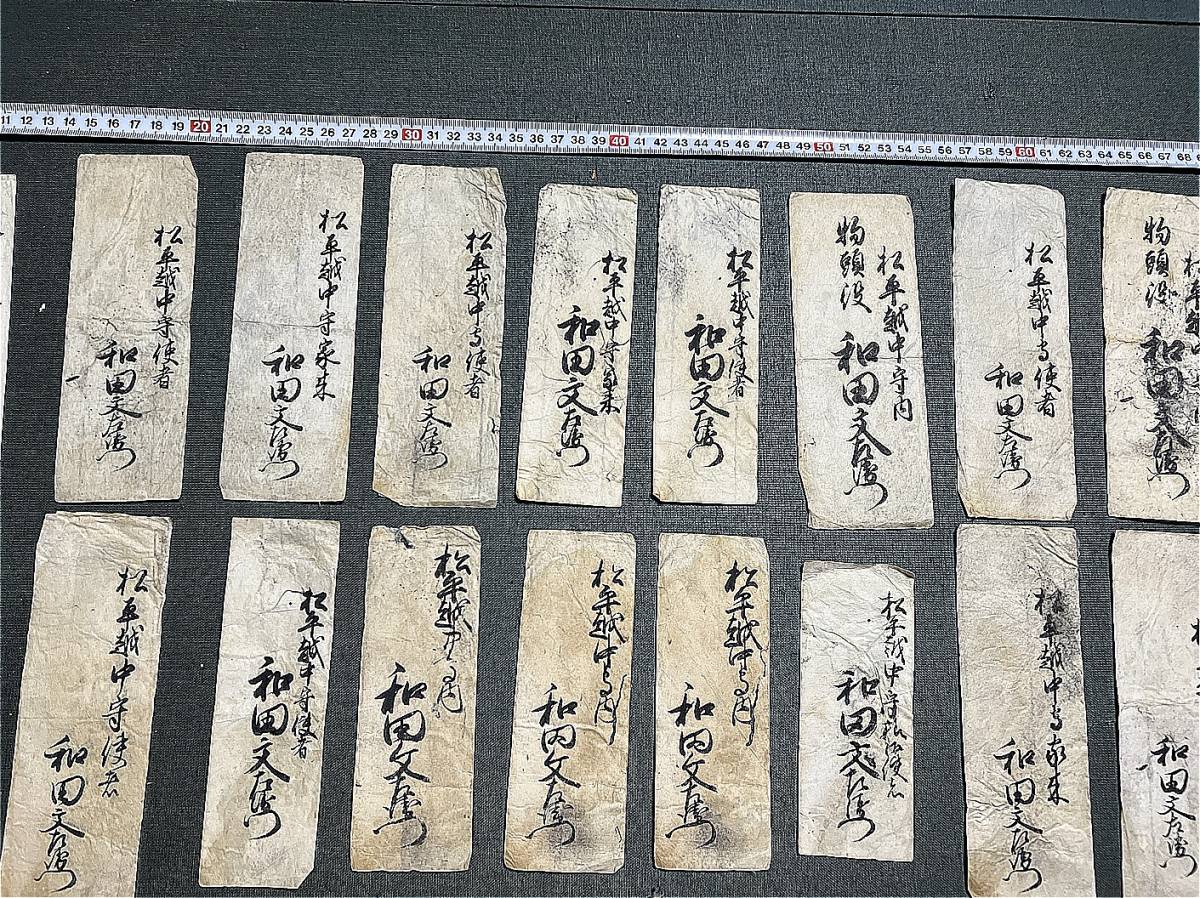 11 12 13 14 15 16 17 18 19 20 21 22 23 24 25 26 27 28 29 30 31 32 33 34 35 36 37 38 39 40 41 42 43 44 45 46 47 48 49 50 51 52 53 54 55 56 57 58 59 60 61 62 63 64 65 66 67 68
松平越中守使者
和田文左衛門
松平越中守家来
和田文左衛門
松平越中守使者
和田文左衛門
松平越中守家来
和田文左衛門
松平越中守使者
和田文左衛門
松平越中守内
物頭役
和田文左衛門
松平越中守使者
和田文左衛門
物頭役
和田文左衛門
松平越中守使者
和田文左衛門
松平越中守使者
和田文左衛門
松平越中守内
和田文左衛門
松平越中守内
和田文左衛門
松平越中守内
和田文左衛門
松平越中守
使者
和田文左衛門
松平越中守家来
和田文左衛門
和田文左衛門